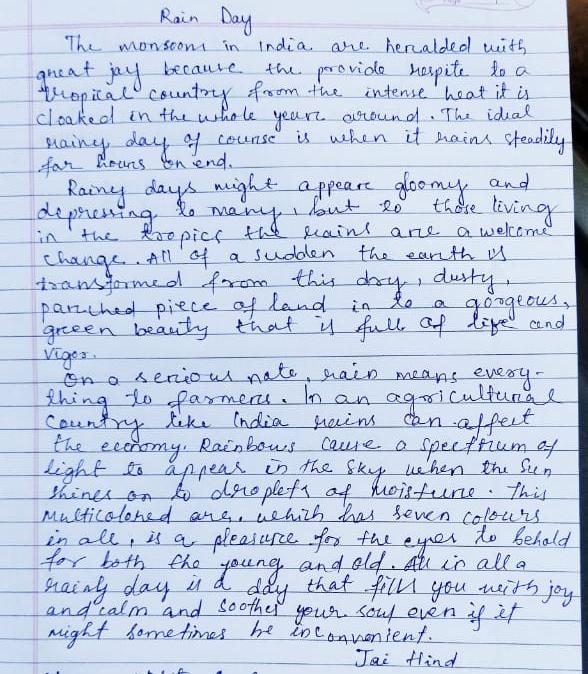 Rain Day
The monsoons in India are heralded with
great joy because the provide respite to a
tropical country from the intense heat it is
cloaked in the whole year around. The ideal
rainy day of course is when it rains steadily
for hours on end.
Rainy days might appeare gloomy and
depressing to many, but to those living
in the tropics the rains are a welcome
change. All of a sudden the earth is
transformed from this dry, dusty,
parched piece of land in to a gorgeous,
green beauty that is full of life and
vigor.
On a serious note, rain means every-
thing to farmers. In an agricultural
country like India rains can affect
the economy. Rainbows cause a spectrum of
light to appear in the sky when the sun
shines on to droplets of moisture. This
multicolored arc, which has seven colours
in all, is a pleasure for the eyes to behold
for both the young and old. All in all a
rainy day is a day that fills you with joy
and calm and soothes your soul even if it
might sometimes be inconvenient.
Jai Hind